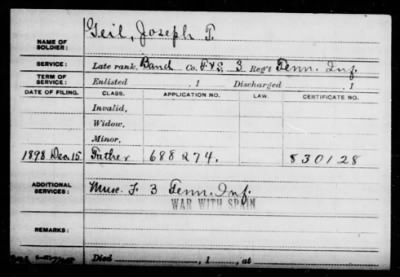 Geil, Joseph T.
NAME OF SOLDIER:
SERVICE: Late rank, Band Co. F&S, 3 Reg't Tenn. Inf.
TERM OF SERVICE: Enlisted , 1 Discharged , 1
DATE OF FILING. CLASS. APPLICATION NO. LAW. CERTIFICATE NO.
Invalid,
Widow,
Minor,
1898 Dec. 15 Father 688274. 530128
ADDITIONAL SERVICES: Mus. F. 3 Tenn. Inf.
WAR WITH SPAIN
REMARKS:
Died , 1 , at